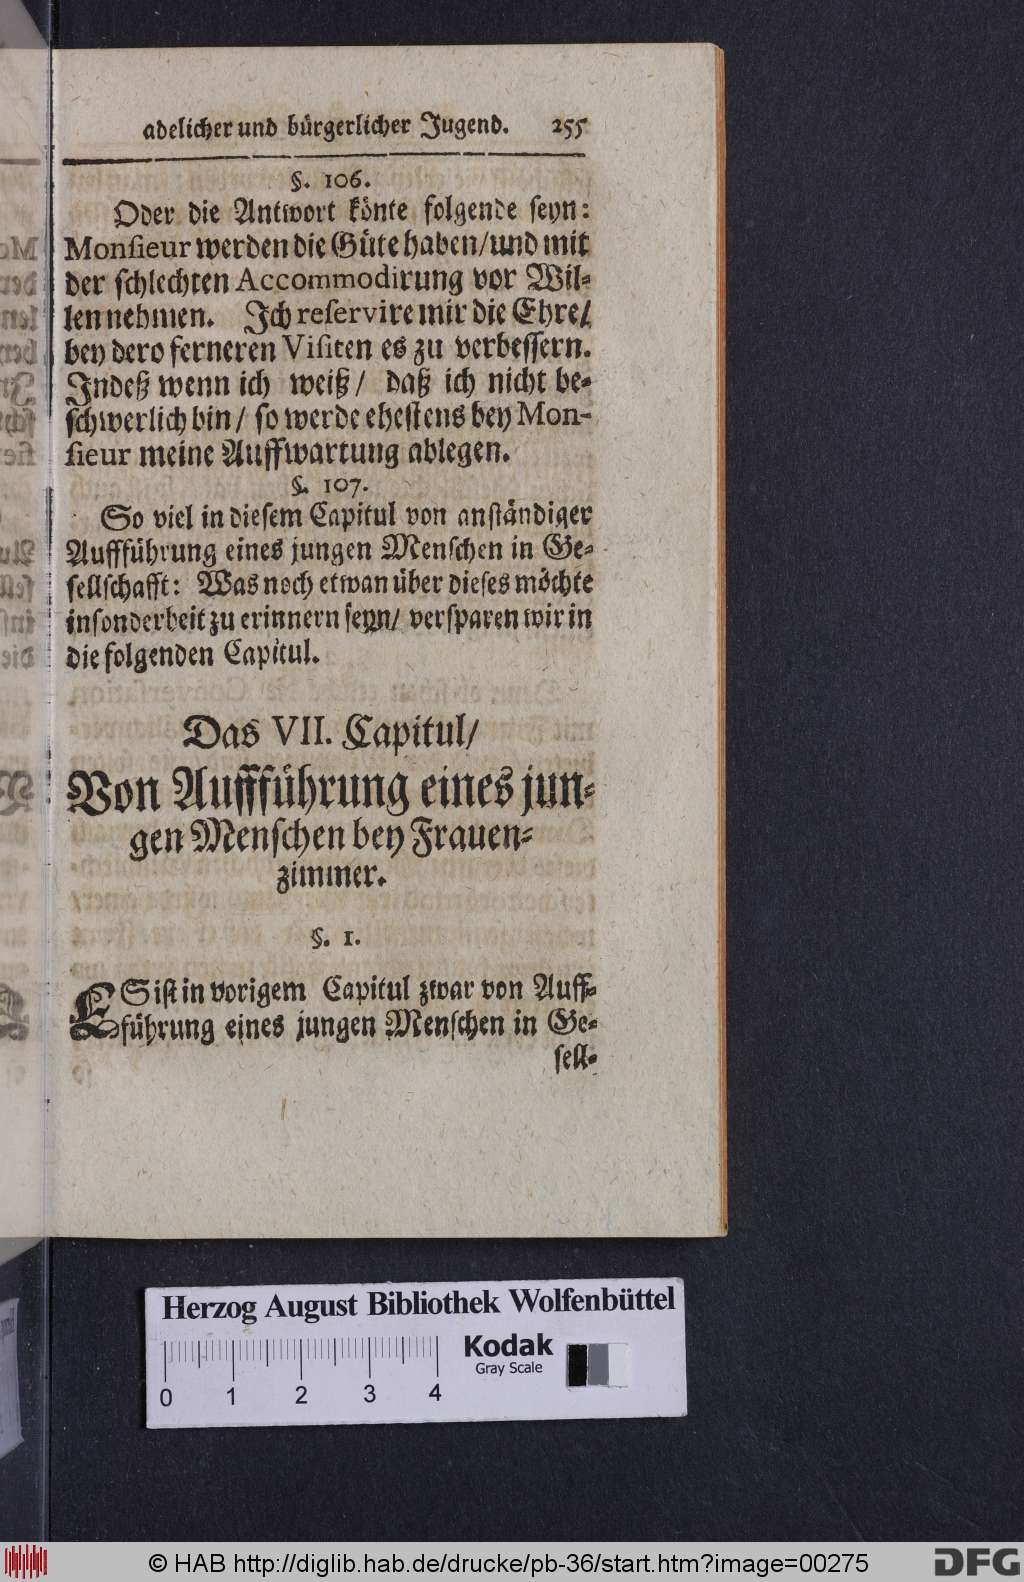 adelicher und bürgerlicher Jugend. 255
§. 106.
Oder die Antwort könte folgende seyn:
Monsieur werden die Güte haben/und mit
der schlechten Accommodirung vor Wil-
len nehmen. Ich reservire mir die Ehre/
bey dero ferneren Visiten es zu verbessern.
Indeß wenn ich weiß/ daß ich nicht be-
schwerlich bin/ so werde ehestens bey Mon-
sieur meine Auffwartung ablegen.
§. 107.
So viel in diesem Capitul von anständiger
Auffführung eines jungen Menschen in Ge-
sellschafft: Was noch etwan über dieses möchte
insonderheit zu erinnern seyn/ versparen wir in
die folgenden Capitul.
Das VII. Capitul/
Von Auffführung eines jun-
gen Menschen bey Frauen-
zimmer.
§. 1.
ES ist in vorigem Capitul zwar von Auff-
führung eines jungen Menschen in Ge-
sell-
Herzog August Bibliothek Wolfenbüttel
Kodak
Gray Scale
0 1 2 3 4
© HAB http://diglib.hab.de/drucke/pb-36/start.htm?image=00275
DFG